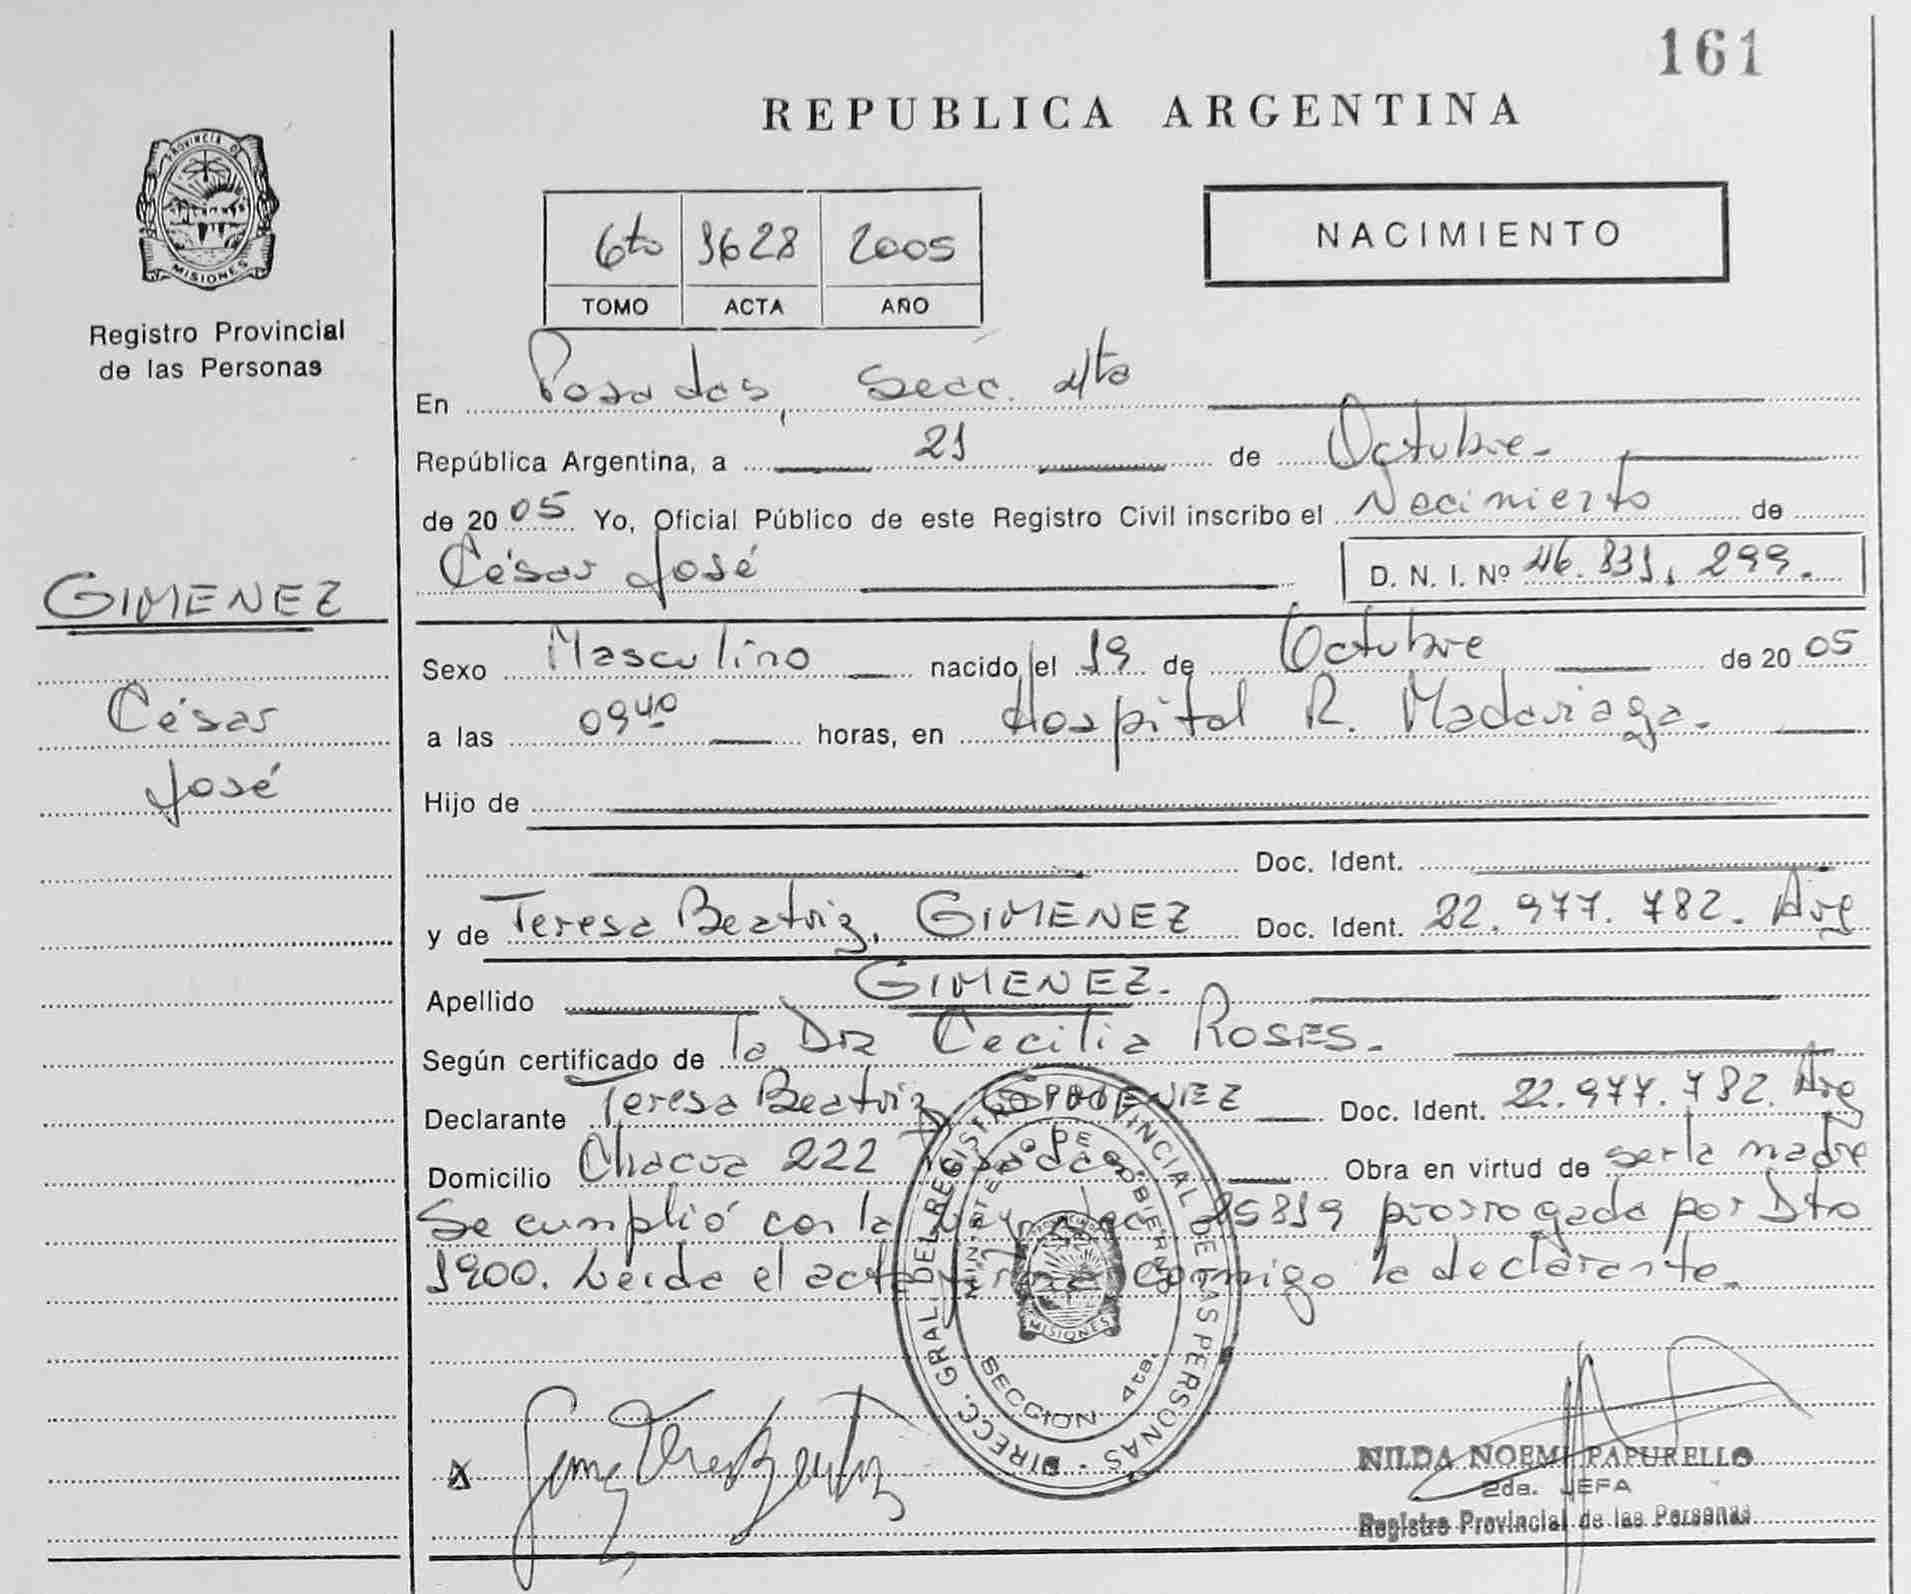 161
REPUBLICA ARGENTINA
PROVINCIA DE
MISIONES
Registro Provincial
de las Personas
6to 3628 2005
TOMO ACTA AÑO
NACIMIENTO
En Posadas, Secc. 4ta
República Argentina, a 21 de Octubre.
de 2005 Yo, Oficial Público de este Registro Civil inscribo el Nacimiento de
César José D. N. I. Nº 46.831.299.
GIMENEZ
César
José
Sexo Masculino nacido el 19 de Octubre de 2005
a las 0940 horas, en Hospital R. Madariaga.
Hijo de
Doc. Ident.
y de Teresa Beatriz, GIMENEZ Doc. Ident. 22.977.782. Arg
Apellido GIMENEZ.
Según certificado de la Dra Cecilia ROSES.
Declarante Teresa Beatriz GIMENEZ Doc. Ident. 22.977.782. Arg
Domicilio Chacra 222 Posadas Obra en virtud de ser la madre
Se cumplió con la Ley 25819 prorrogada por Dto
1900. Leida el acta firma conmigo la declarante.
DIRECC. GRAL. DEL REGISTRO PROVINCIAL DE LAS PERSONAS
MINISTERIO DE GOBIERNO
MISIONES
SECCION 4ta.
X
NILDA NOEMI PAPURELLO
2da. JEFA
Registro Provincial de las Personas